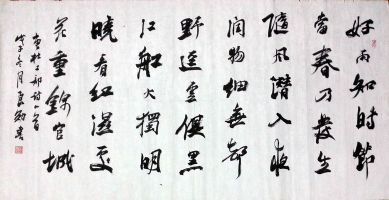 好雨知时節
当春乃发生
随风潜入夜
润物细無声
野迳雲俱黑
江船火獨明
晓看红濕处
花重錦官城
杜工部诗一首
戊子冬月